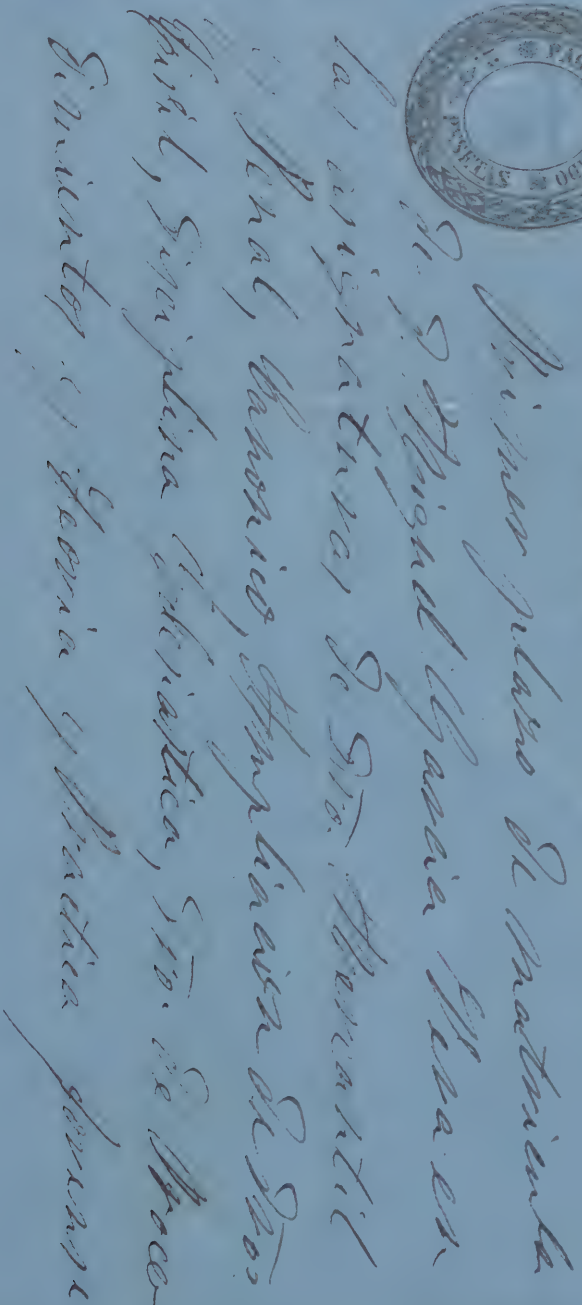 PAG
PESETAS
Primer plazo de matricula
de D. Miguel Garcia
las asignaturas de Dro. Mercantil
y Penal, Canonico, Ampliacion de Dro.
Civil, Disciplina eclesiastica, Dro. de Proce
dimientos y Teoria y Practica